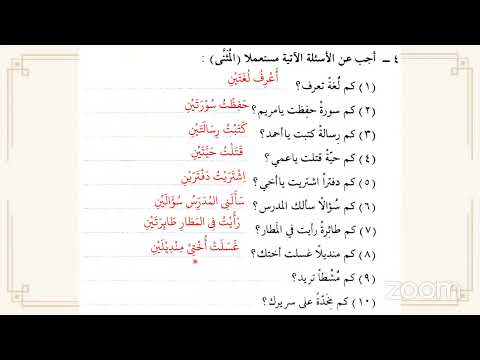 ٤ – أجب عن الأسئلة الآتية مستعملا (الْمُثَنَّى) :
(١) كم لُغةً تعرف؟ أَعْرِفُ لُغَتَيْنِ
(٢) كم سورةً حفِظت يامريم؟ حَفِظْتُ سُوْرَتَيْنِ
(٣) كم رِسالةً كتبت ياأحمد؟ كَتَبْتُ رِسَالَتَيْنِ
(٤) كم حيّةً قتلت ياعمي؟ قَتَلْتُ حَيَّتَيْنِ
(٥) كم دفتراً اشتريت ياأخي؟ اِشْتَرَيْتُ دَفْتَرَيْنِ
(٦) كم سُؤالًا سألك المدرس؟ سَأَلَنِى المُدَرِّسُ سُؤَالَيْنِ
(٧) كم طائِرةً رأيت في المَطار؟ رَأَيْتُ فِى المَطَارِ طَايِرَتَيْنِ
(٨) كم منديلًا غسلت أختك؟ غَسَلَتْ أُخْتِىْ مِنْدِيْلَيْنِ
(٩) كم مُشْطاً تريد؟
(١٠) كم مِخَدّةً على سريرك؟
zoom